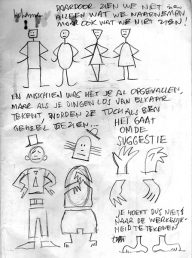 DAARDOOR ZIEN WE NIET
ALLEEN WAT WE WAARNEMEN
MAAR OOK WAT WE NIET ZIEN!
EN MISSCHIEN WAS HET JE AL OPGEVALLEN,
MAAR ALS JE DINGEN LOS VAN ELKAAR
TEKENT, WORDEN ZE TOCH ALS EEN
GEHEEL GEZIEN...
HET GAAT
OM DE
SUGGESTIE
JE HOEFT DUS NIET
NAAR DE WERKELIJK-
HEID TE TEKENEN